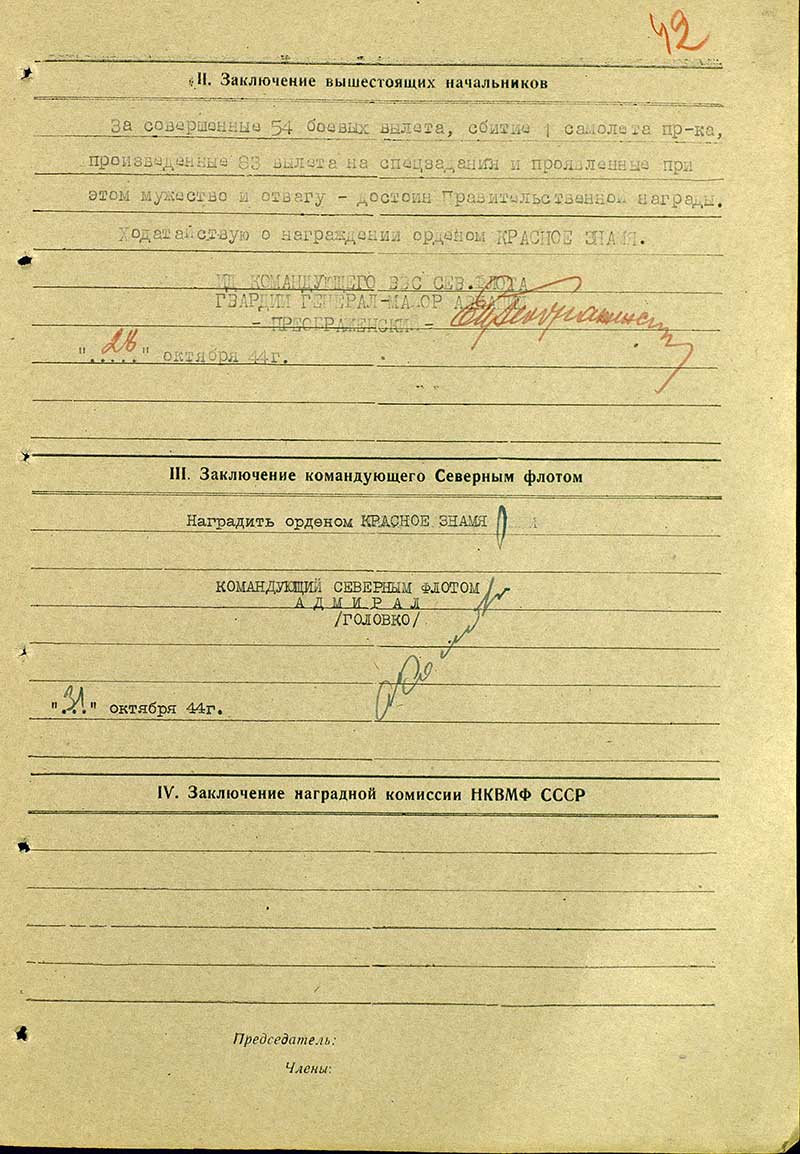 42
II. Заключение вышестоящих начальников
За совершенные 54 боевых вылета, сбитие 1 самолета пр-ка,
произведенные 83 вылета на спецзадания и проявленные при
этом мужество и отвагу - достоин Правительственной награды.
Ходатайствую о награждении орденом КРАСНОЕ ЗНАМЯ.
КОМАНДУЮЩЕГО ВВС СЕВ.ФЛОТА
ГВАРДИИ ГЕНЕРАЛ-МАЙОР АВИАЦИИ
- ПРЕОБРАЖЕНСКИЙ -
"28" октября 44г.
III. Заключение командующего Северным флотом
Наградить орденом КРАСНОЕ ЗНАМЯ
КОМАНДУЮЩИЙ СЕВЕРНЫМ ФЛОТОМ
АДМИРАЛ
/ГОЛОВКО/
"31" октября 44г.
IV. Заключение наградной комиссии НКВМФ СССР
Председатель:
Члены: